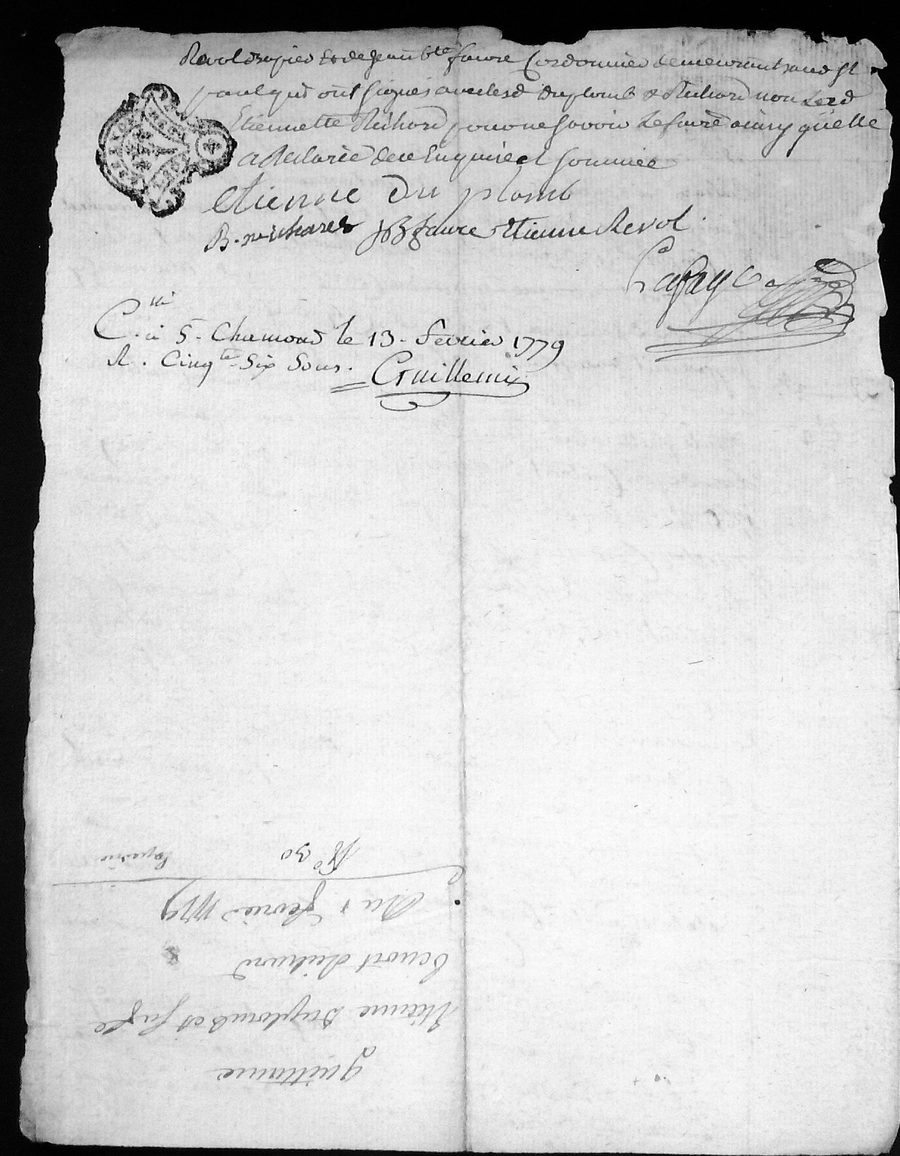 Revol et de Jean bte favre Cordonnier demeurant aud St
paul qui ont signés avec lesd duplomb & Richard non lad
Etiennette Richard pour ne savoir le faire ainsy quelle
a declarée de ce Enquise et sommée
etienne du plomb
B. richard JB favre etienne Revol
Lafay
C. lé à St Chamond le 13 février 1779
R. Cinqte Six Sous. Guillemin
quittance
Etienne Duplomb et fme
benoit Richard
Du 1 fevrier 1779
No 30